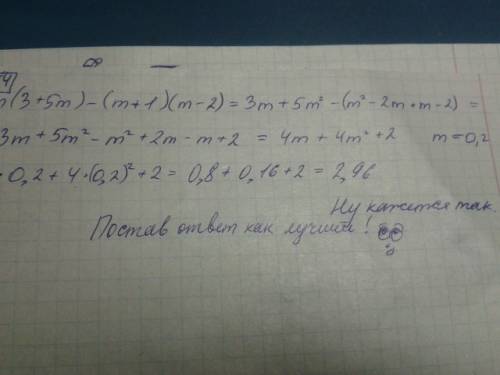 4
m(3+5m)-(m+1)(m-2)=3m+5m²-(m²-2m+m-2)=
3m+5m²-m²+2m-m+2 = 4m+4m²+2 m=0,2
· 0,2+4·(0,2)²+2= 0,8+0,16+2=2,96
Ну кажется так.
Постав ответ как лучший!